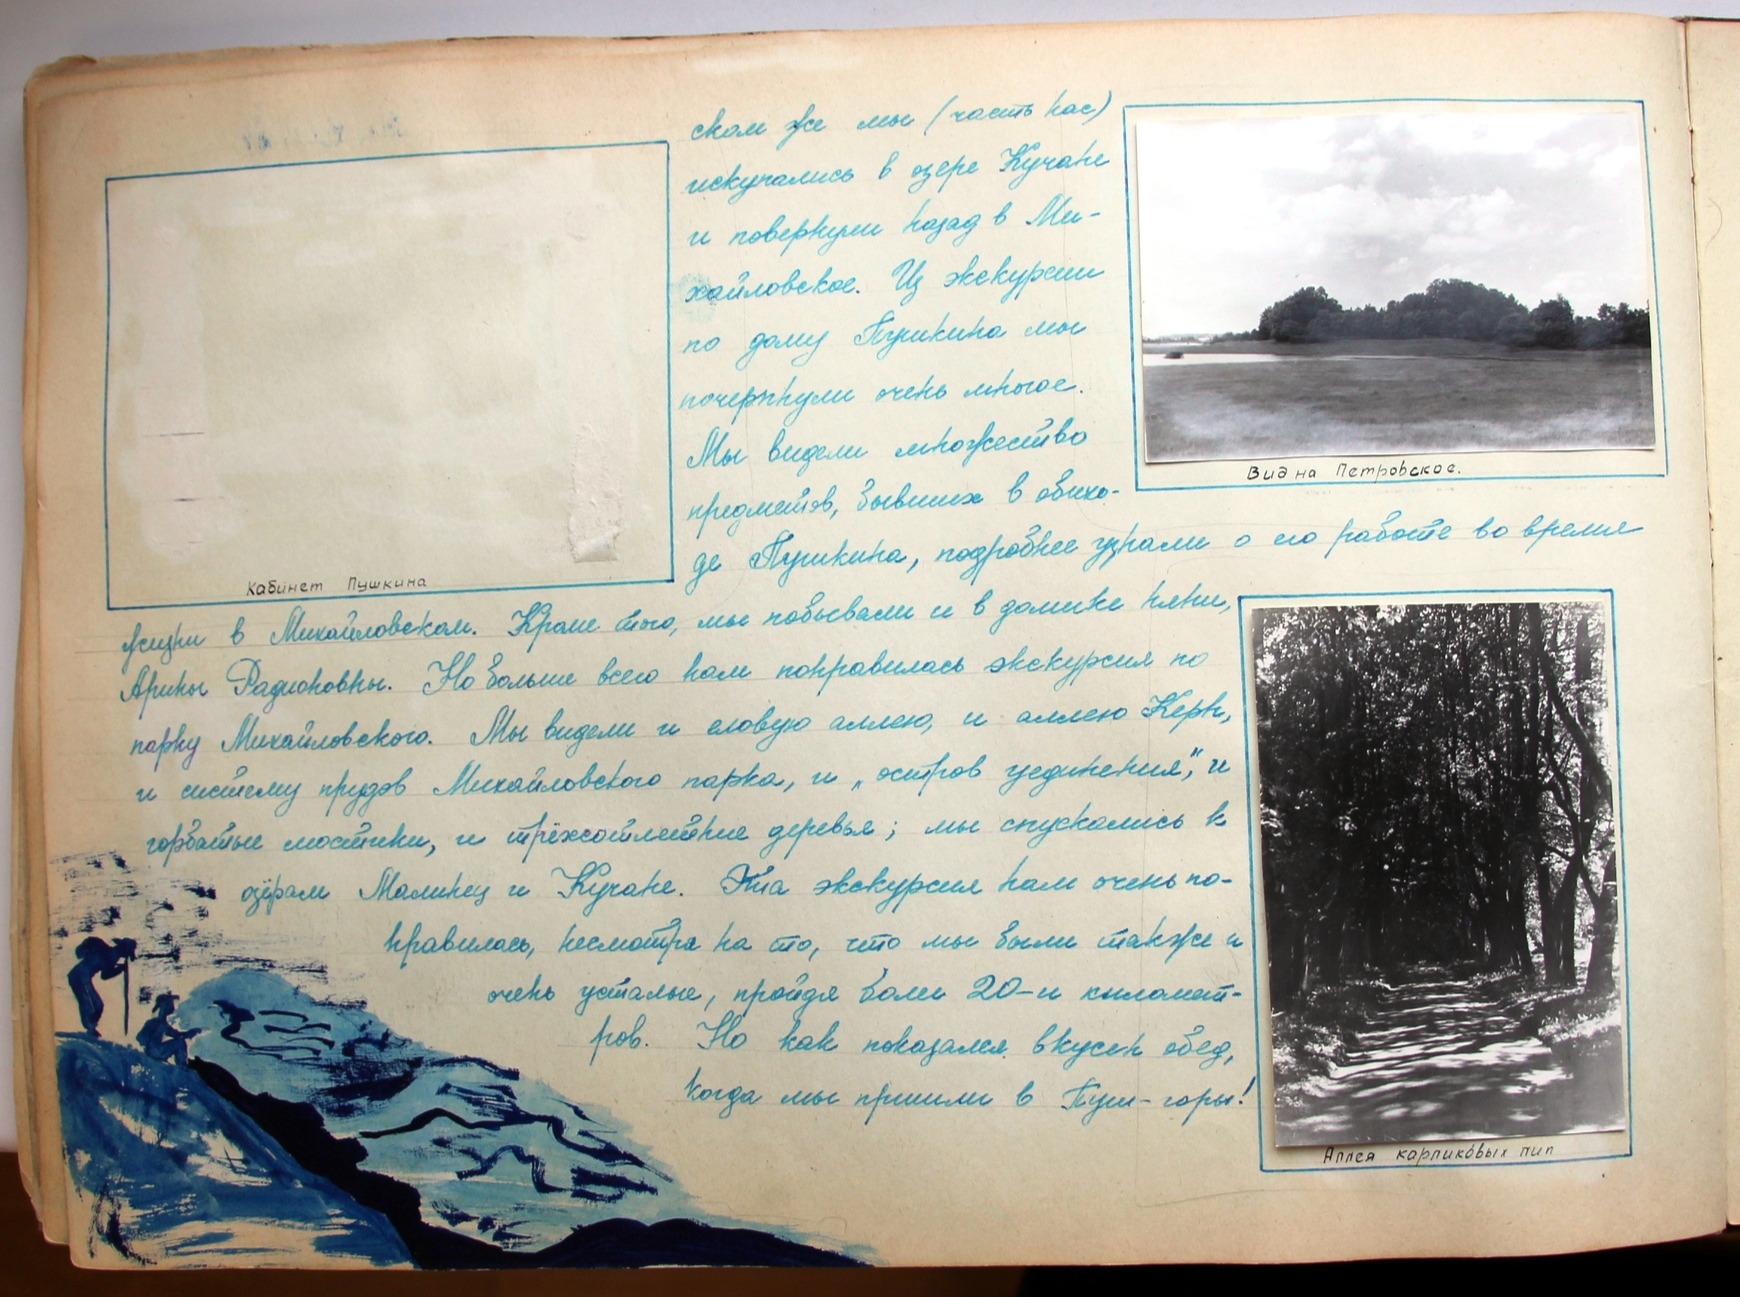 ском же мы (часть нас)
искупались в озере Кучане
и повернули назад в Ми-
хайловское. Из экскурсии
по дому Пушкина мы
почерпнули очень многое.
Мы видели множество
предметов, бывших в обихо-
де Пушкина, подробнее узнали о его работе во время
жизни в Михайловском. Кроме того, мы побывали и в домике няни,
Арины Радионовны. Но больше всего нам понравилась экскурсия по
парку Михайловского. Мы видели и еловую аллею, и аллею Керн,
и систему прудов Михайловского парка, и „остров уединения", и
горбатые мостики, и трёхсотлетние деревья; мы спускались к
озёрам Маленец и Кучане. Эта экскурсия нам очень по-
нравилась, несмотря на то, что мы были также и
очень усталые, пройдя более 20-и километ-
ров. Но как показался вкусен обед,
когда мы пришли в Пуш-горы!
Кабинет Пушкина
Вид на Петровское.
Аллея карликовых лип